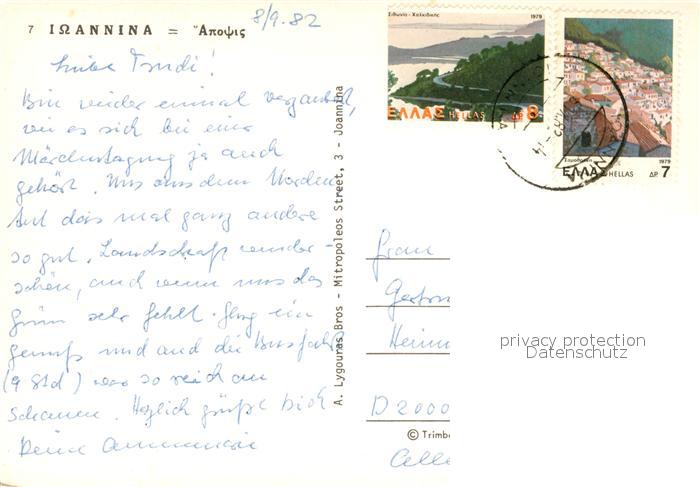 7 ΙΩΑΝΝΙΝΑ = Ἄποψις
8/9.82
Liebe Trudi!
Bin wieder einmal verzaubert,
wie es sich bei einer
Märchentagung ja auch
gehört. Uns aus dem Norden
tut das mal ganz andere
so gut, Landschaft wunder-
schön, auch wenn uns das
Grün sehr fehlt. Flug ein
Genuß und auch die Busfahrt
(9 Std) war so reich an
Schauen. Herzlich grüßt Dich
Deine Annemarie
A. Lygouras Bros - Mitropoleos Street, 3 - Joannina
Σιθωνία - Χαλκιδικῆς 1979
ΕΛΛΑΣ HELLAS ΔΡ 8
Σαμοθράκη 1979
ΕΛΛΑΣ HELLAS ΔΡ 7
Frau
D 2000
© Trimb
privacy protection
Datenschutz